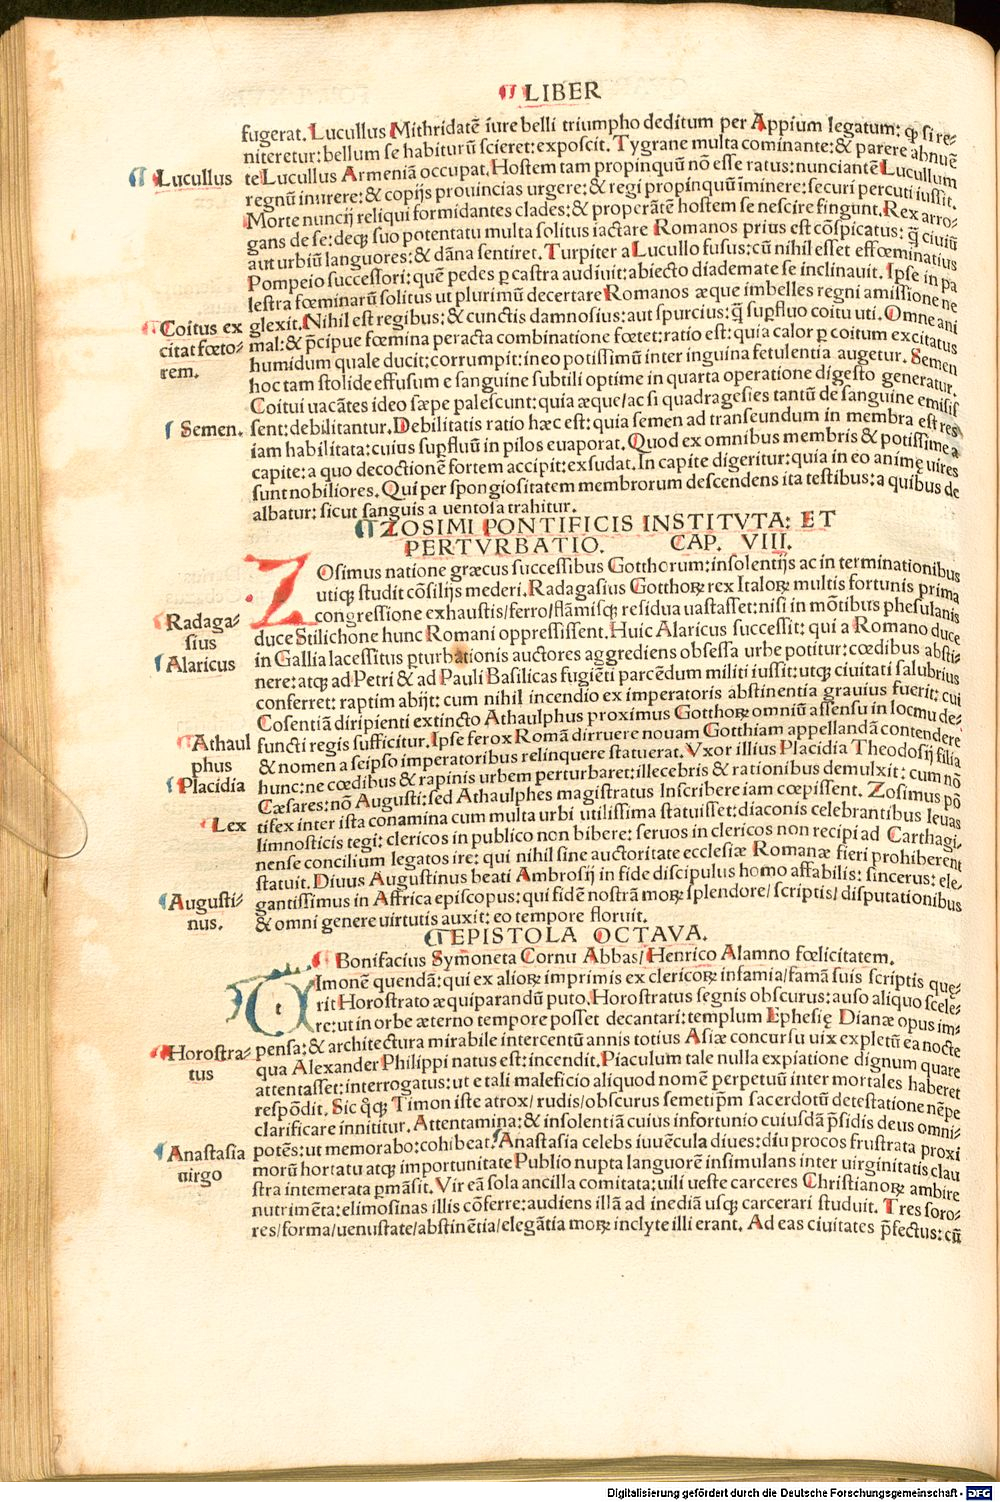 ¶ LIBER
fugerat. Lucullus Mithridatē iure belli triumpho deditum per Appium legatum: ꝙ si re-
niteretur: bellum se habiturū scieret: exposcit. Tygrane multa cominante: & parere abnuē
¶ Lucullus
te Lucullus Armeniā occupat. Hostem tam propinquū nō esse ratus: nunciantē Lucullum
regnū inurere: & copijs prouincias urgere: & regi propinquū iminere: securi percuti iussit.
Morte nuncij reliqui formidantes clades: & properātē hostem se nescire fingunt. Rex arro-
gans de se: deqꝫ suo potentatu multa solitus iactare Romanos prius est cōspicatus: q̄ ciuiū
aut urbiū languores: & dāna sentiret. Turpiter a Lucullo fusus: cū nihil esset effœminatius
Pompeio successori: quē pedes ꝑ castra audiuit: abiecto diademate se inclinauit. Ipse in pa
lestra fœminarū solitus ut plurimū decertare Romanos æque imbelles regni amissione ne
¶ Coitus ex
citat fœto-
rem.
glexit. Nihil est regibus: & cunctis damnosius: aut spurcius: q̄ suꝑfluo coitu uti. Omne ani
mal: & p̄cipue fœmina peracta combinatione fœtet: ratio est: quia calor ꝑ coitum excitatus
humidum quale ducit: corrumpit: in eo potissimū inter inguina fetulentia augetur. Semen
hoc tam stolide effusum e sanguine subtili optime in quarta operatione digesto generatur.
Coitui uacātes ideo sæpe palescunt: quia æque/ ac si quadragesies tantū de sanguine emisis
¶ Semen.
sent: debilitantur. Debilitatis ratio hæc est: quia semen ad transeundum in membra est res
iam habilitata: cuius suꝑfluū in pilos euaporat. Quod ex omnibus membris & potissime a
capite: a quo decoctionē fortem accipit: exsudat. In capite digeritur: quia in eo animę uires
sunt nobiliores. Qui per spongiositatem membrorum descendens ita testibus: a quibus de
albatur: sicut sanguis a uentosa trahitur.
¶ ZOSIMI PONTIFICIS INSTITVTA: ET
PERTVRBATIO. CAP. VIII.
ZOsimus natione græcus successibus Gotthorum: insolentijs ac in terminationibus
utiqꝫ studit cōsilijs mederi. Radagasius Gotthoꝝ rex Italoꝝ multis fortunis prima
¶ Radaga-
sius
congressione exhaustis/ ferro/ flāmisqꝫ residua uastasset: nisi in mōtibus phesulanis
duce Stilichone hunc Romani oppressissent. Huic Alaricus successit: qui a Romano duce
¶ Alaricus
in Gallia lacessitus ꝑturbationis auctores aggrediens obsessa urbe potitur: cœdibus absti-
nere: atqꝫ ad Petri & ad Pauli Basilicas fugiēti parcēdum militi iussit: utqꝫ ciuitati salubrius
conferret: raptim abijt: cum nihil incendio ex imperatoris abstinentia grauius fuerit: cui
Cosentiā diripienti extincto Athaulphus proximus Gotthoꝝ omniū assensu in locmu de-
¶ Athaul
phus
functi regis sufficitur. Ipse ferox Romā dirruere nouam Gotthiam appellandā contendere
& nomen a seipso imperatoribus relinquere statuerat. Vxor illius Placidia Theodosij filia
¶ Placidia
hunc: ne cœdibus & rapinis urbem perturbaret: illecebris & rationibus demulxit: cum nō
Cæsares: nō Augusti: sed Athaulphes magistratus Inscribere iam cœpissent. Zosimus pō
¶ Lex
tifex inter ista conamina cum multa urbi utilissima statuisset: diaconis celebrantibus leuas
limnosticis tegi: clericos in publico non bibere: seruos in clericos non recipi ad Carthagi-
nense concilium legatos ire: qui nihil sine auctoritate ecclesiæ Romanæ fieri prohiberent
statuit. Diuus Augustinus beati Ambrosij in fide discipulus homo affabilis: sincerus: ele-
¶ Augusti-
nus.
gantissimus in Affrica episcopus: qui fidē nostrā moꝝ splendore/ scriptis/ disputationibus
& omni genere uirtutis auxit: eo tempore floruit.
¶ EPISTOLA OCTAVA.
¶ Bonifacius Symoneta Cornu Abbas/ Henrico Alamno fœlicitatem.
t Imonē quendā: qui ex alioꝝ imprimis ex clericoꝝ infamia/ famā suis scriptis quę-
rit Horostrato æquiparandū puto. Horostratus segnis obscurus: auso aliquo scele-
re: ut in orbe æterno tempore posset decantari: templum Ephesię Dianæ opus im-
¶ Horostra-
tus
pensa: & architectura mirabile intercentū annis totius Asiæ concursu uix expletū ea nocte
qua Alexander Philippi natus est: incendit. Piaculum tale nulla expiatione dignum quare
attentasset: interrogatus: ut e tali maleficio aliquod nomē perpetuū inter mortales haberet
respōdit. Sic q̊qꝫ Timon iste atrox/ rudis/ obscurus semetip̄m sacerdotū detestatione nēpe
clarificare innititur. Attentamina: & insolentiā cuius infortunio cuiusdā p̄sidis deus omni-
¶ Anastasia
uirgo
potēs: ut memorabo: cohibeat. ¶ Anastasia celebs iuuēcula diues: diu procos frustrata proxi
morū hortatu atqꝫ importunitate Publio nupta languorē insimulans inter uirginitatis clau
stra intemerata ꝑmāsit. Vir eā sola ancilla comitata: uili ueste carceres Christianoꝝ ambire
nutrimēta: elimosinas illis cōferre: audiens illā ad inediā usqꝫ carcerari studuit. Tres soro-
res/ forma/ uenustate/ abstinētia/ elegātia moꝝ inclyte illi erant. Ad eas ciuitates p̄fectus: cū
Digitalisierung gefördert durch die Deutsche Forschungsgemeinschaft - DFG